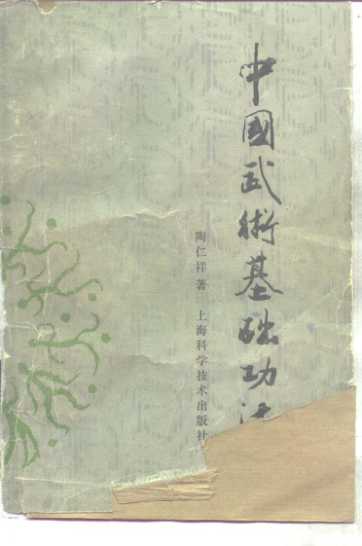 中國武術基础功法
陶仁祥著
上海科学技术出版社